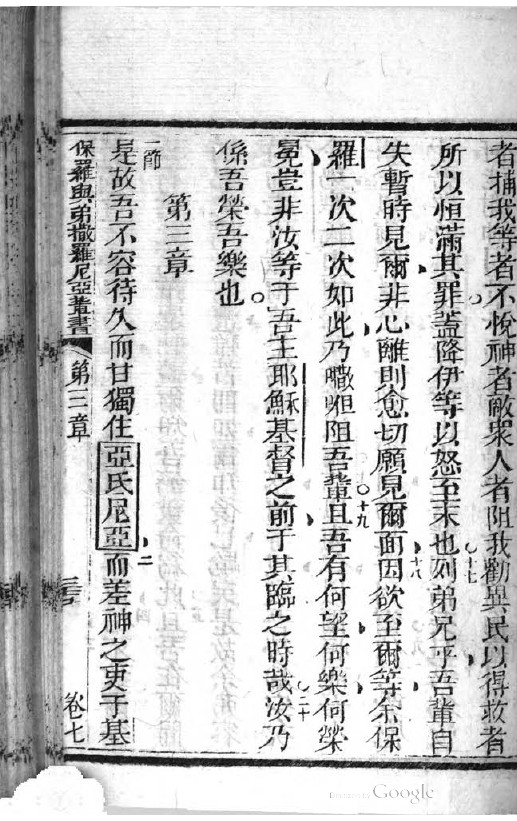 者捕我等者不悅神者敵衆人者阻我勸異民以得救者
所以恒滿其罪蓋降伊等以怒至末也十七列弟兄乎吾輩自
失暫時見爾非心離則愈切願見爾面十八因欲至爾等余保
羅一次二次如此乃㘔呾阻吾輩十九且吾有何望何樂何榮
冕豈非汝等于吾主耶穌基督之前于其臨之時哉二十汝乃
係吾榮吾樂也
第三章
一節
是故吾不容待久而甘獨住亞氏尼亞二而差神之吏于基
保羅與弟撒羅尼亞書 第三章 三 卷七
Digitized by Google